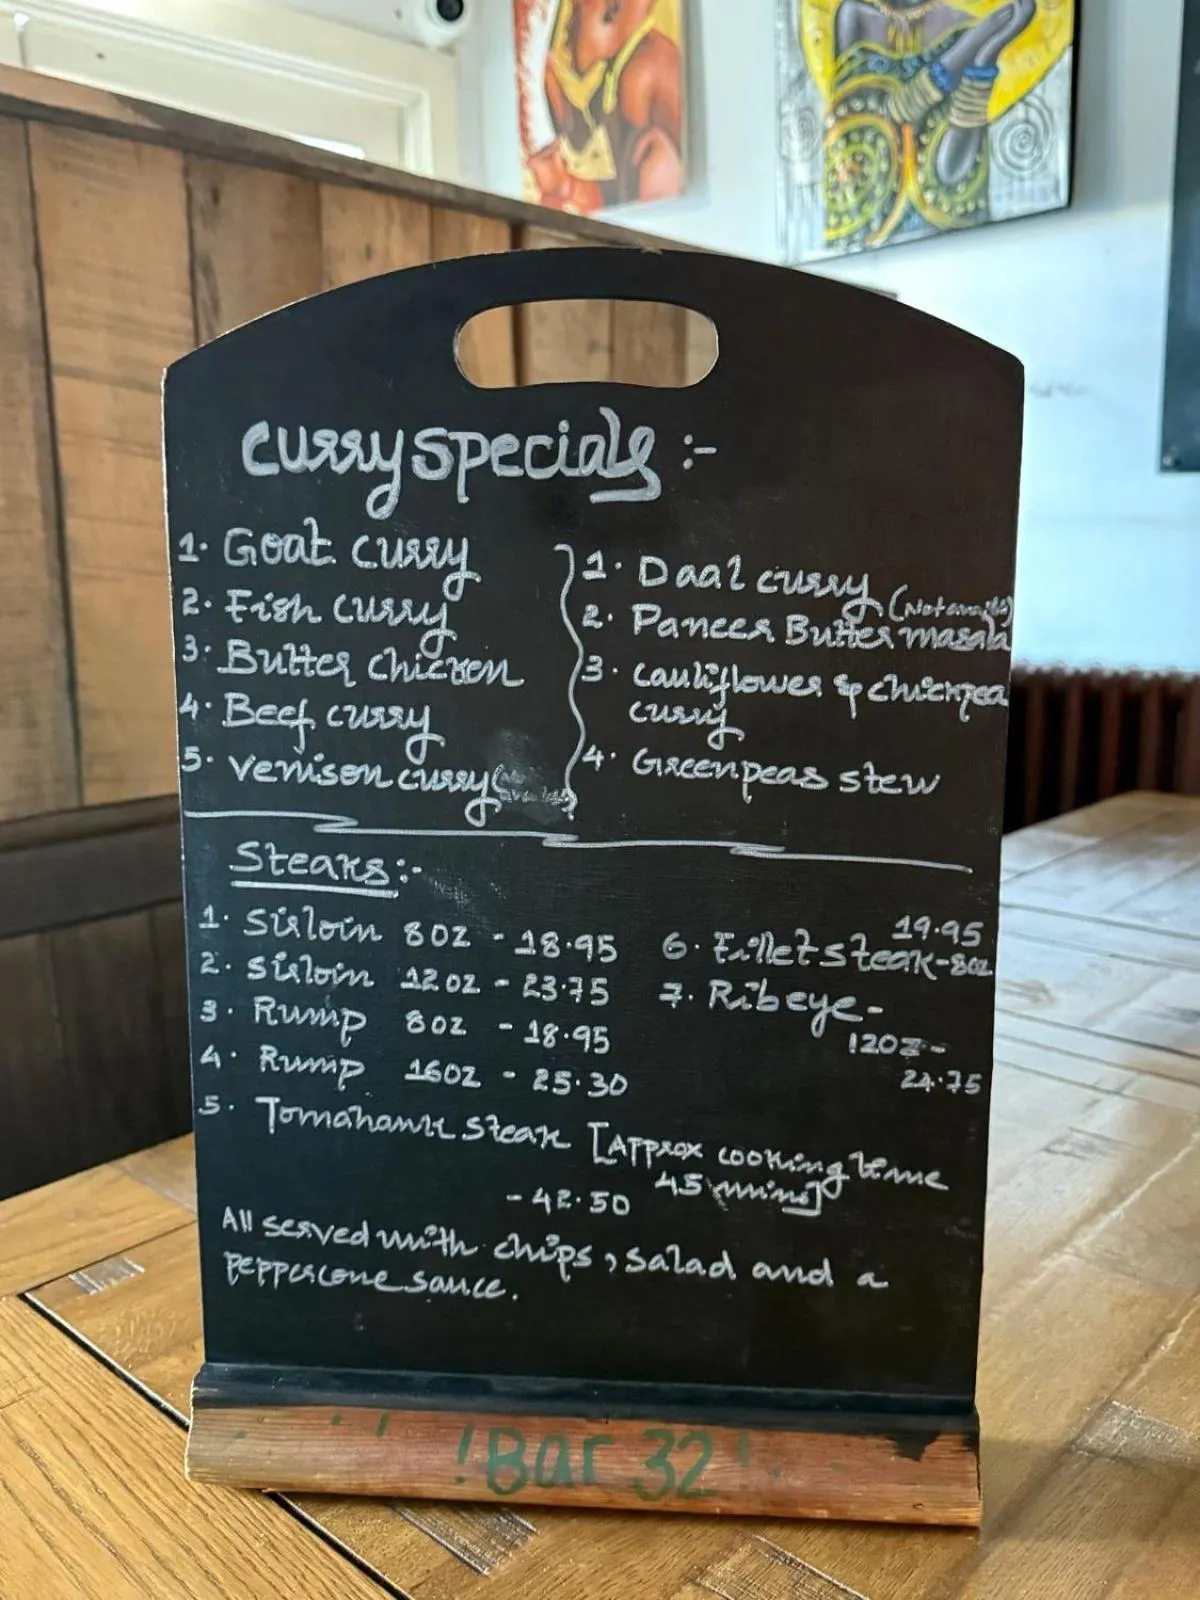 curry specials :-
1. Goat curry
2. Fish curry
3. Butter chicken
4. Beef curry
5. Venison curry
1. Daal curry
2. Paneer Butter masala
3. cauliflower & chickpea
curry
4. Greenpeas stew
Steaks:-
1. Sirloin 8oz - 18.95
2. Sirloin 12oz - 23.75
3. Rump 8oz - 18.95
4. Rump 16oz - 25.30
5. Tomahawk steak [Approx cooking time
45 mins]
- 42.50
19.95
6. Fillet steak - 8oz
7. Ribeye -
12oz -
24.75
All served with chips, salad and a
peppercone sauce.
! Bar 32 !